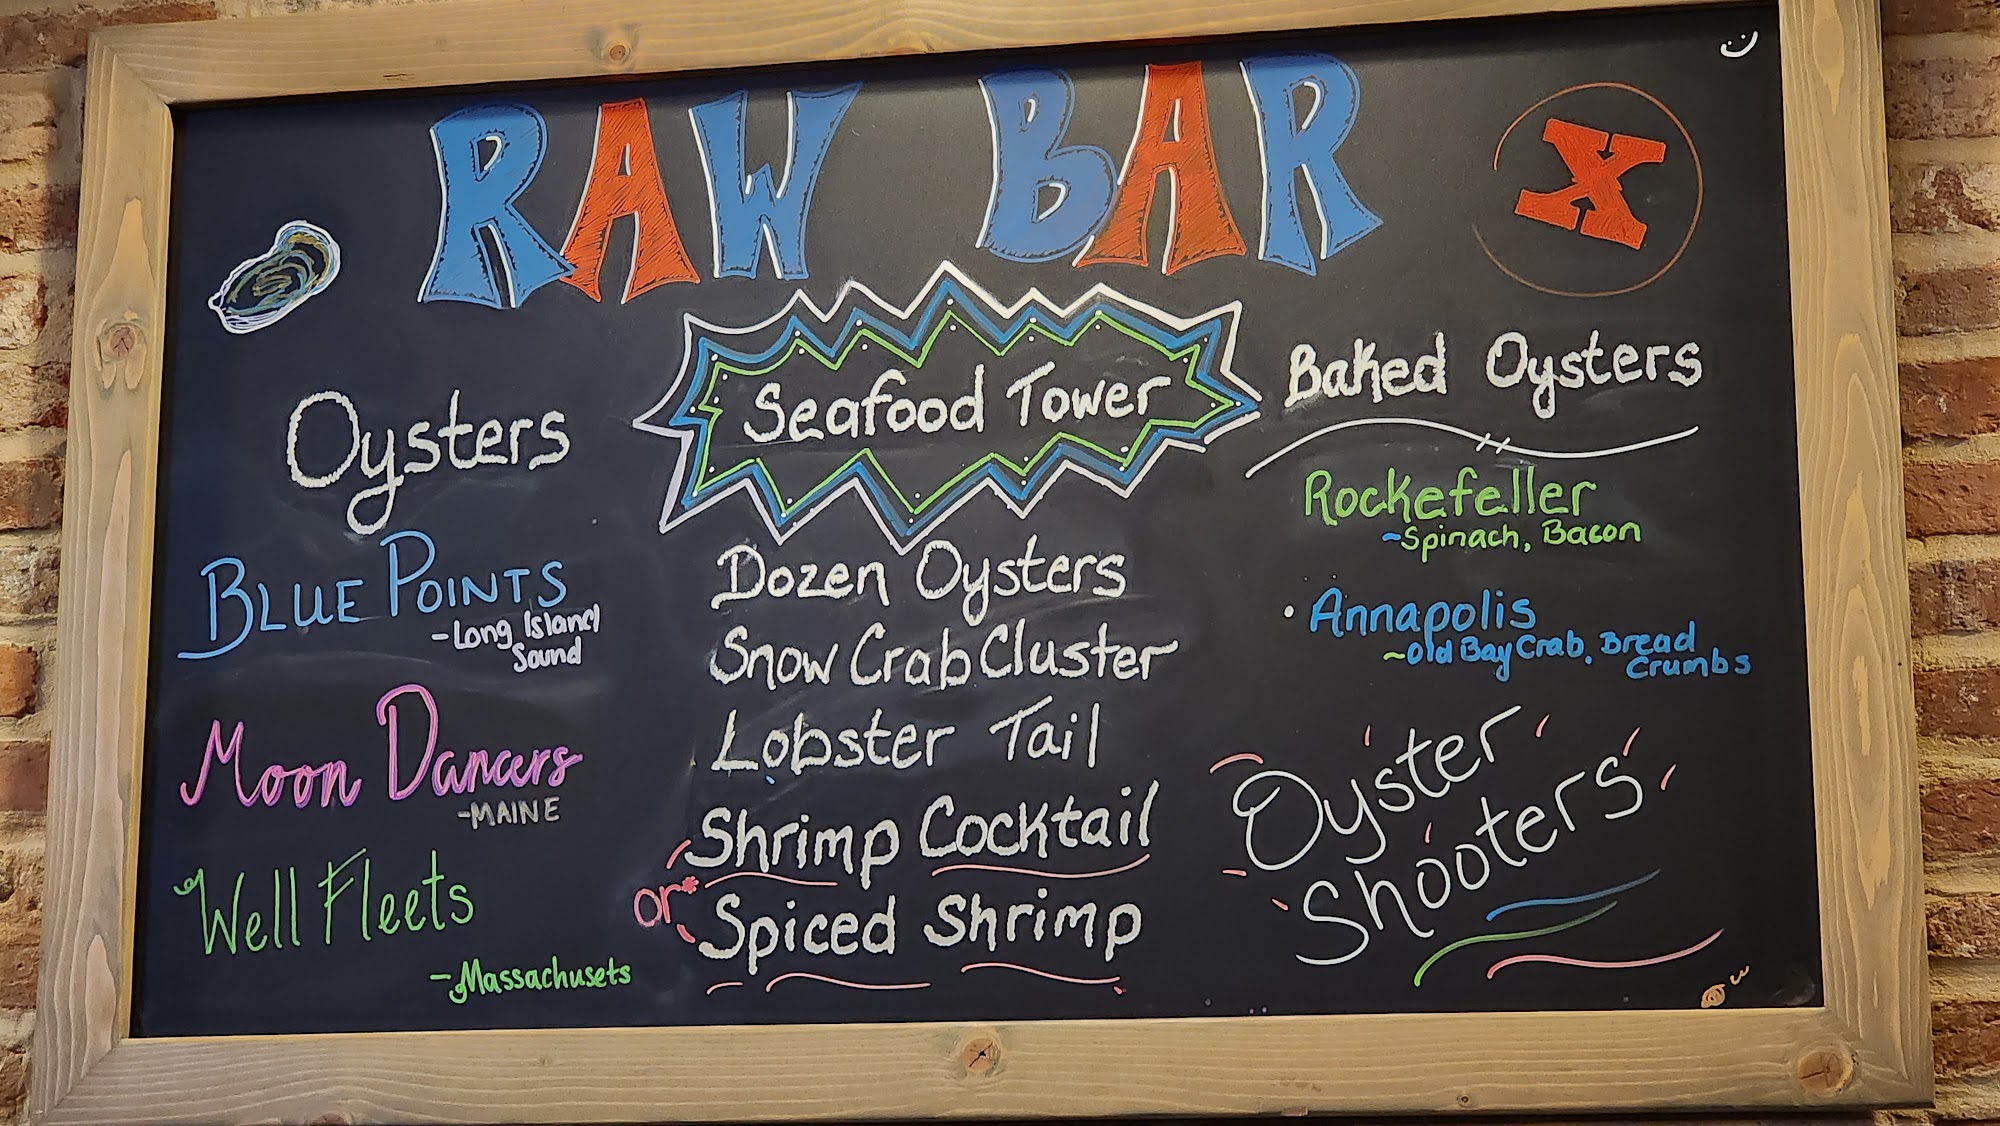 RAW BAR
X
Oysters
BLUE POINTS
-Long Island
Sound
Moon Dancers
-MAINE
Well Fleets
-Massachusets
Seafood Tower
Dozen Oysters
Snow Crab Cluster
Lobster Tail
Shrimp Cocktail
or
Spiced Shrimp
Baked Oysters
Rockefeller
~Spinach, Bacon
• Annapolis
~Old Bay Crab, Bread
Crumbs
Oyster
Shooters